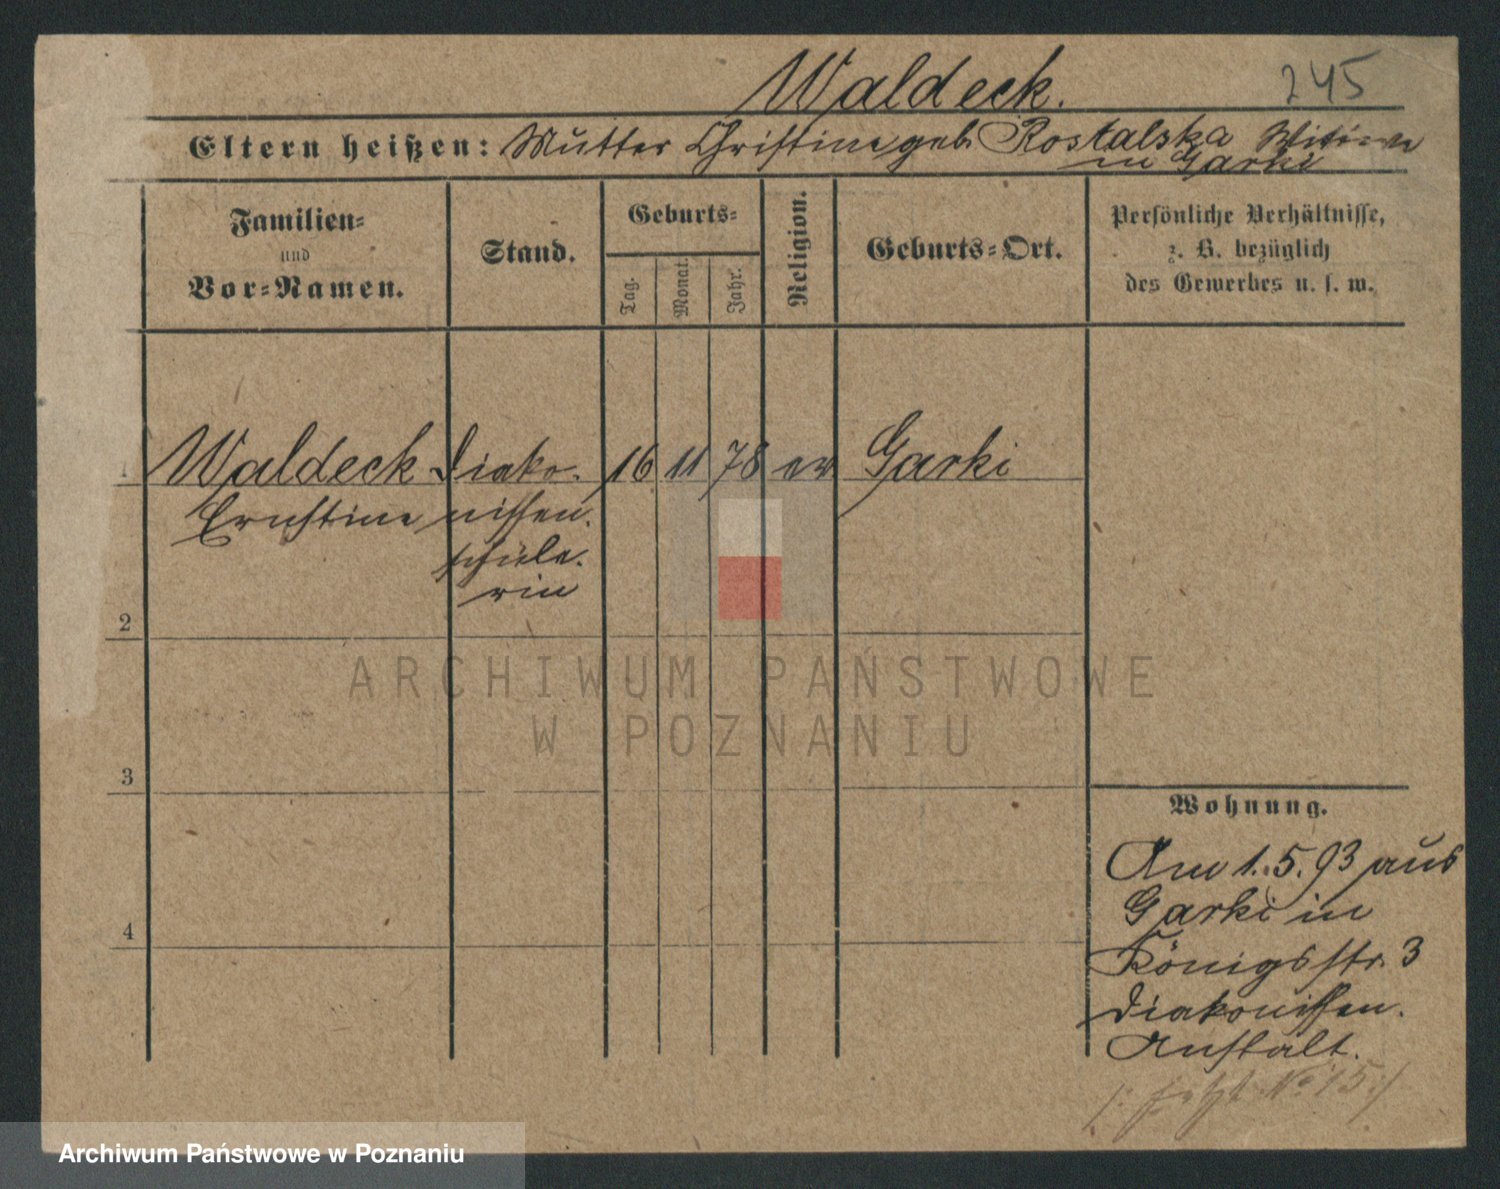 Waldeck.
245
Eltern heißen: Mutter Christine geb. Rostalska Witwe
in Garki
Familien-
und
Vor-Namen.
Stand.
Geburts-
Tag.
Monat.
Jahr.
Religion.
Geburts-Ort.
Persönliche Verhältnisse,
z. B. bezüglich
des Gewerbes u. s. w.
1 Waldeck Diako- 16 11 78 ev Garki
Ernstine nissen-
schüle-
rin
2
ARCHIWUM PAŃSTWOWE
W POZNANIU
3
Wohnung.
Am 1.5.93 aus
Garki in
4
Königsstr. 3
Diakonissen-
Anstalt.
/: jetzt No 15 :/
Archiwum Państwowe w Poznaniu